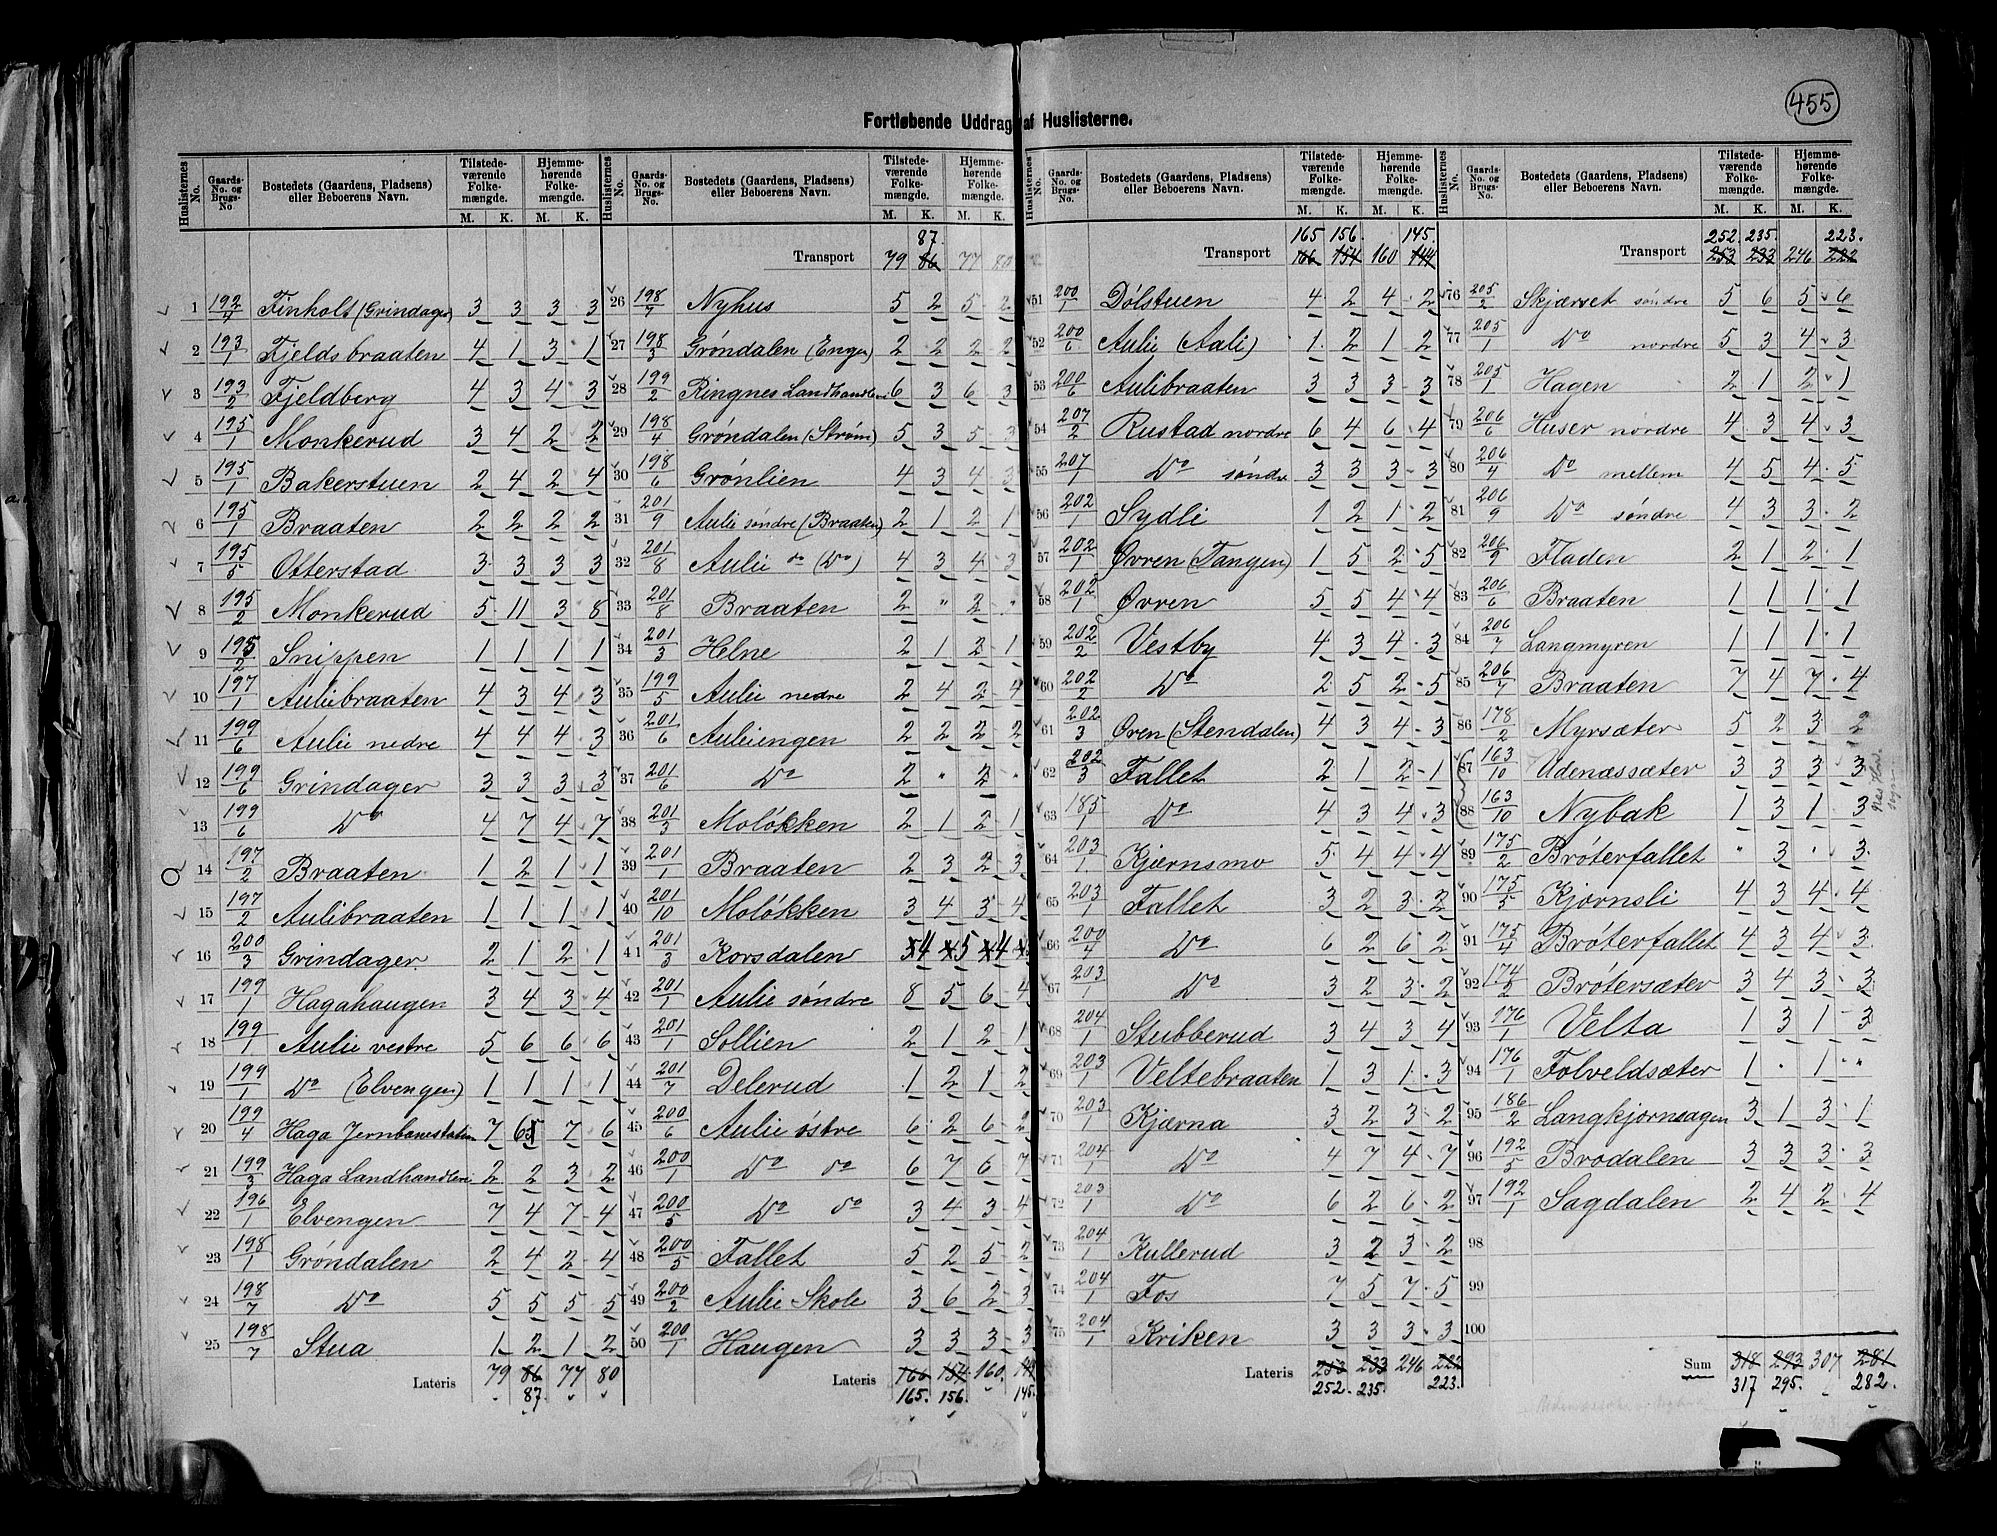 455
Fortløbende Uddrag af Huslisterne.
Huslisternes No. | Gaards-No. og Brugs-No. | Bostedets (Gaardens, Pladsens) eller Beboerens Navn. | Tilstedeværende Folkemængde. M. K. | Hjemmehørende Folkemængde. M. K.
1 192/4 Finholt (Grindager) 3 3 3 3
2 193/1 Fjeldsbraaten 4 1 3 1
3 193/2 Fjeldberg 4 3 4 3
4 195/1 Monkerud 3 4 2 2
5 195/1 Bakerstuen 2 4 2 4
6 195/1 Braaten 2 2 2 2
7 195/5 Otterstad 3 3 3 3
8 195/2 Monkerud 5 11 3 8
9 195/2 Snippen 1 1 1 1
10 197/1 Aulibraaten 4 3 4 3
11 199/6 Aulie nedre 4 4 4 3
12 199/6 Grindager 3 3 3 3
13 199/6 Do 4 7 4 7
14 197/2 Braaten 1 2 1 1
15 197/2 Aulibraaten 1 1 1 1
16 200/3 Grindager 2 1 2 1
17 199/1 Hagahaugen 3 4 3 4
18 199/1 Aulie vestre 5 6 6 6
19 199/1 Do (Elvengen) 1 1 1 1
20 199/4 Haga Jernbanestation 7 6 7 6
21 199/3 Haga Landhandleri 2 2 3 2
22 196/1 Elvengen 7 4 7 4
23 198/1 Grøndalen 2 4 2 4
24 198/7 Do 5 5 5 5
25 198/7 Stua 1 2 1 2
Lateris 79 86 77 80
87
Transport 79 86 77 80
87.
26 198/7 Nyhus 5 2 5 2
27 198/3 Grøndalen (Engen) 2 2 2 2
28 199/2 Ringnes Landhandleri 6 3 6 3
29 198/4 Grøndalen (Strøm) 5 3 5 3
30 198/6 Grønlien 4 3 4 3
31 201/9 Aulie søndre (Braaten) 2 1 2 1
32 201/8 Aulie do (Do) 4 3 4 3
33 201/8 Braaten 2 " 2 "
34 201/3 Helne 2 1 2 1
35 199/5 Aulie nedre 2 4 2 4
36 201/6 Auliengen 2 2 2 2
37 201/6 Do 2 " 2 "
38 201/3 Moløkken 2 1 2 1
39 201/1 Braaten 2 3 2 3
40 201/10 Moløkken 3 4 3 4
41 201/3 Korsdalen 4 5 4
42 201/1 Aulie søndre 8 5 6 4
43 201/1 Sollien 2 1 2 1
44 201/7 Delerud 1 2 1 2
45 200/6 Aulie østre 6 2 6 2
46 200/1 Do do 6 7 6 7
47 200/5 Do do 3 4 3 4
48 200/5 Fallet 5 2 5 2
49 200/2 Aulie Skole 3 6 2 3
50 200/1 Haugen 3 3 3 3
Lateris 166 154 160 144
165. 156. 145.
165 156. 145.
Transport 166 154 160 144
51 200/1 Dølstuen 4 2 4 2
52 200/6 Aulie (Aali) 1 2 1 2
53 200/6 Aulibraaten 3 3 3 3
54 207/2 Rustad nordre 6 4 6 4
55 207/1 Do søndre 3 3 3 3
56 202/1 Sydli 1 2 1 2
57 202/1 Øvren (Tangen) 1 5 2 5
58 202/1 Øvren 5 5 4 4
59 202/2 Vestby 4 3 4 3
60 202/2 Do 2 5 2 5
61 202/3 Øvren (Stendalen) 4 3 4 3
62 202/3 Fallet 2 1 2 1
63 185/1 Do 4 3 4 3
64 203/1 Kjærnsmo 5 4 4 4
65 203/1 Fallet 3 2 3 2
66 200/4 Do 6 2 6 2
67 203/1 Do 3 2 3 2
68 204/1 Stubberud 3 4 3 4
69 203/1 Veltebraaten 1 3 1 3
70 203/1 Kjærna 3 2 3 2
71 204/1 Do 4 7 4 7
72 203/1 Do 6 2 6 2
73 204/1 Kullerud 3 2 3 2
74 204/1 Fos 7 5 7 5
75 204/1 Kriken 3 3 3 3
Lateris 253 233 246 222
252. 235. 223.
252. 235. 223.
Transport 253 233 246 222
76 205/2 Skjærset søndre 5 6 5 6
77 205/1 Do nordre 5 3 4 3
78 205/1 Hagen 2 1 2 1
79 206/6 Huser nordre 4 3 4 3
80 206/4 Do mellem 4 5 4 5
81 206/9 Do søndre 4 3 3 2
82 206/9 Fladen 2 1 2 1
83 206/6 Braaten 1 1 1 1
84 206/7 Langmyren 1 1 1 1
85 206/7 Braaten 7 4 7 4
86 178/2 Myrsæter 5 2 3 2
87 163/10 Udenæssæter 3 3 3 3
88 163/10 Nybak 1 3 1 3
89 175/2 Brøterfallet " 3 " 3
90 175/5 Kjørnsli 4 3 4 4
91 175/4 Brøterfallet 4 3 4 3
92 174/2 Brøtersæter 3 4 3 3
93 176/1 Velta 1 3 1 3
94 176/1 Folveldsæter 1 " 1 "
95 186/2 Langkjørnsagen 3 1 3 1
96 192/5 Brodalen 3 3 3 3
97 192/1 Sagdalen 2 4 2 4
98
99
100
Sum 318 293 307 281
317 295. 282.